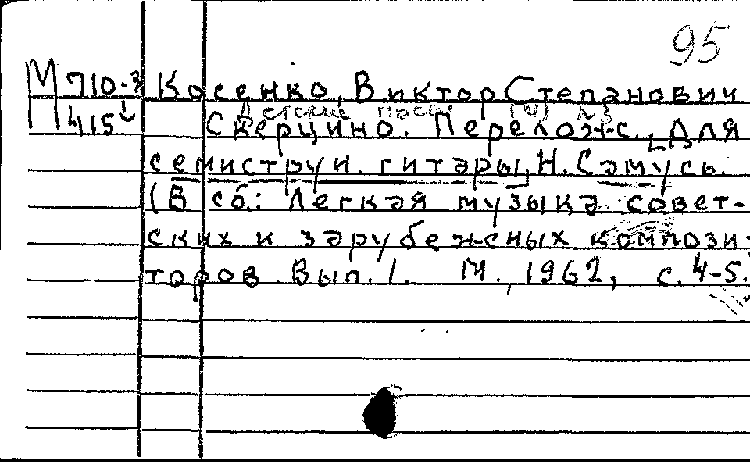 95
М 710-3 Косенко, Виктор Степанович
415 Детские пьесы
Скерцино. Перелож., для
семиструн. гитары, Н. Самусь.
(В сб.: Легкая музыка совет-
ских и зарубежных компози-
торов. Вып. 1. М., 1962, с. 4-5.